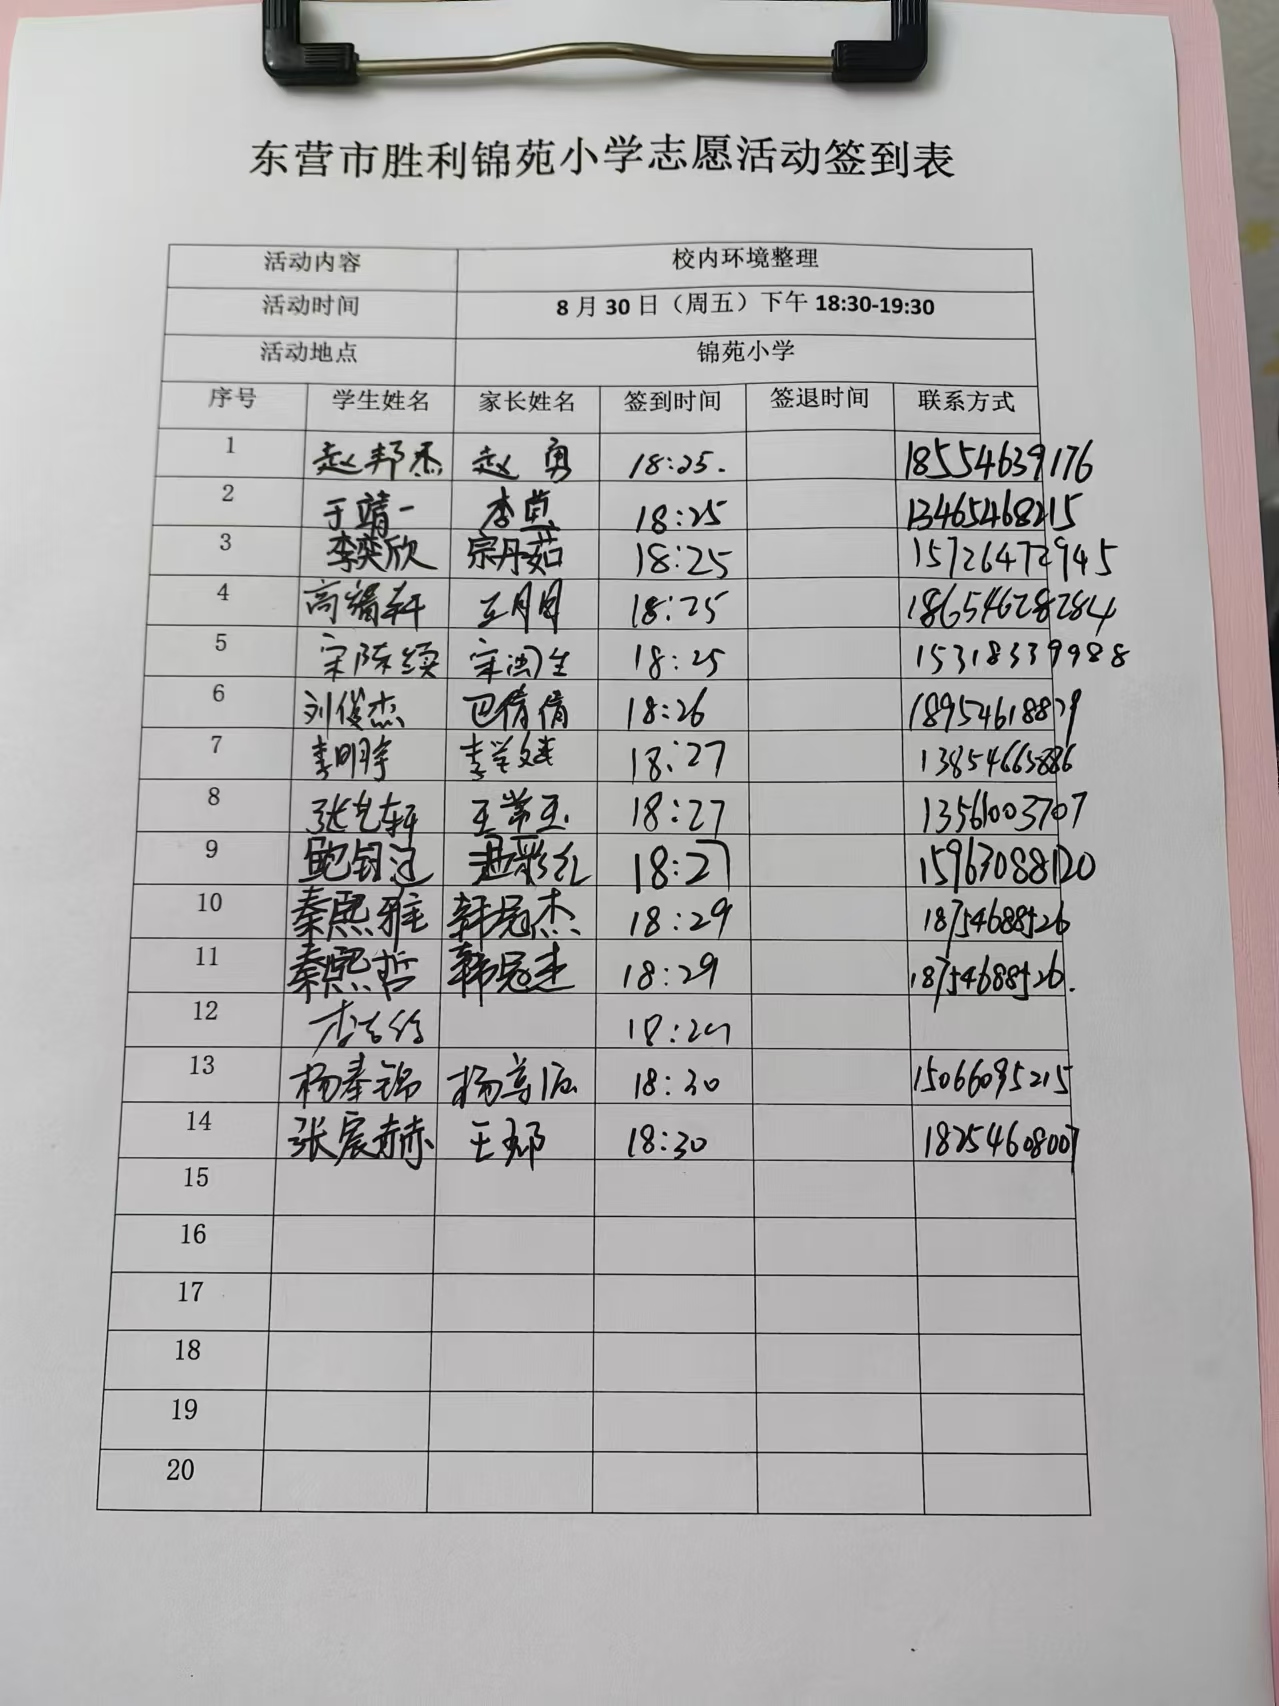 东营市胜利锦苑小学志愿活动签到表
活动内容 校内环境整理
活动时间 8月30日（周五）下午 18:30-19:30
活动地点 锦苑小学
序号 学生姓名 家长姓名 签到时间 签退时间 联系方式
1 赵邦杰 赵勇 18:25. 18554639176
2 于靖一 李真 18:25 13465468215
3 李奕欣 宗丹茹 18:25 15726472945
4 高耀轩 18:25 18654628284
5 宋陈续 18:25 15318339988
6 刘俊杰 巴倩倩 18:26 18954618829
7 李明宇 18:27 13854665886
8 张艺轩 王常玉 18:27 13561003707
9 18:27 15963088120
10 秦熙雅 韩冠杰 18:29 18754688526
11 秦熙哲 韩冠杰 18:29 18754688526.
12 18:29
13 杨奉锦 18:30 15066095215
14 张宸赫 18:30 18254608007
15
16
17
18
19
20